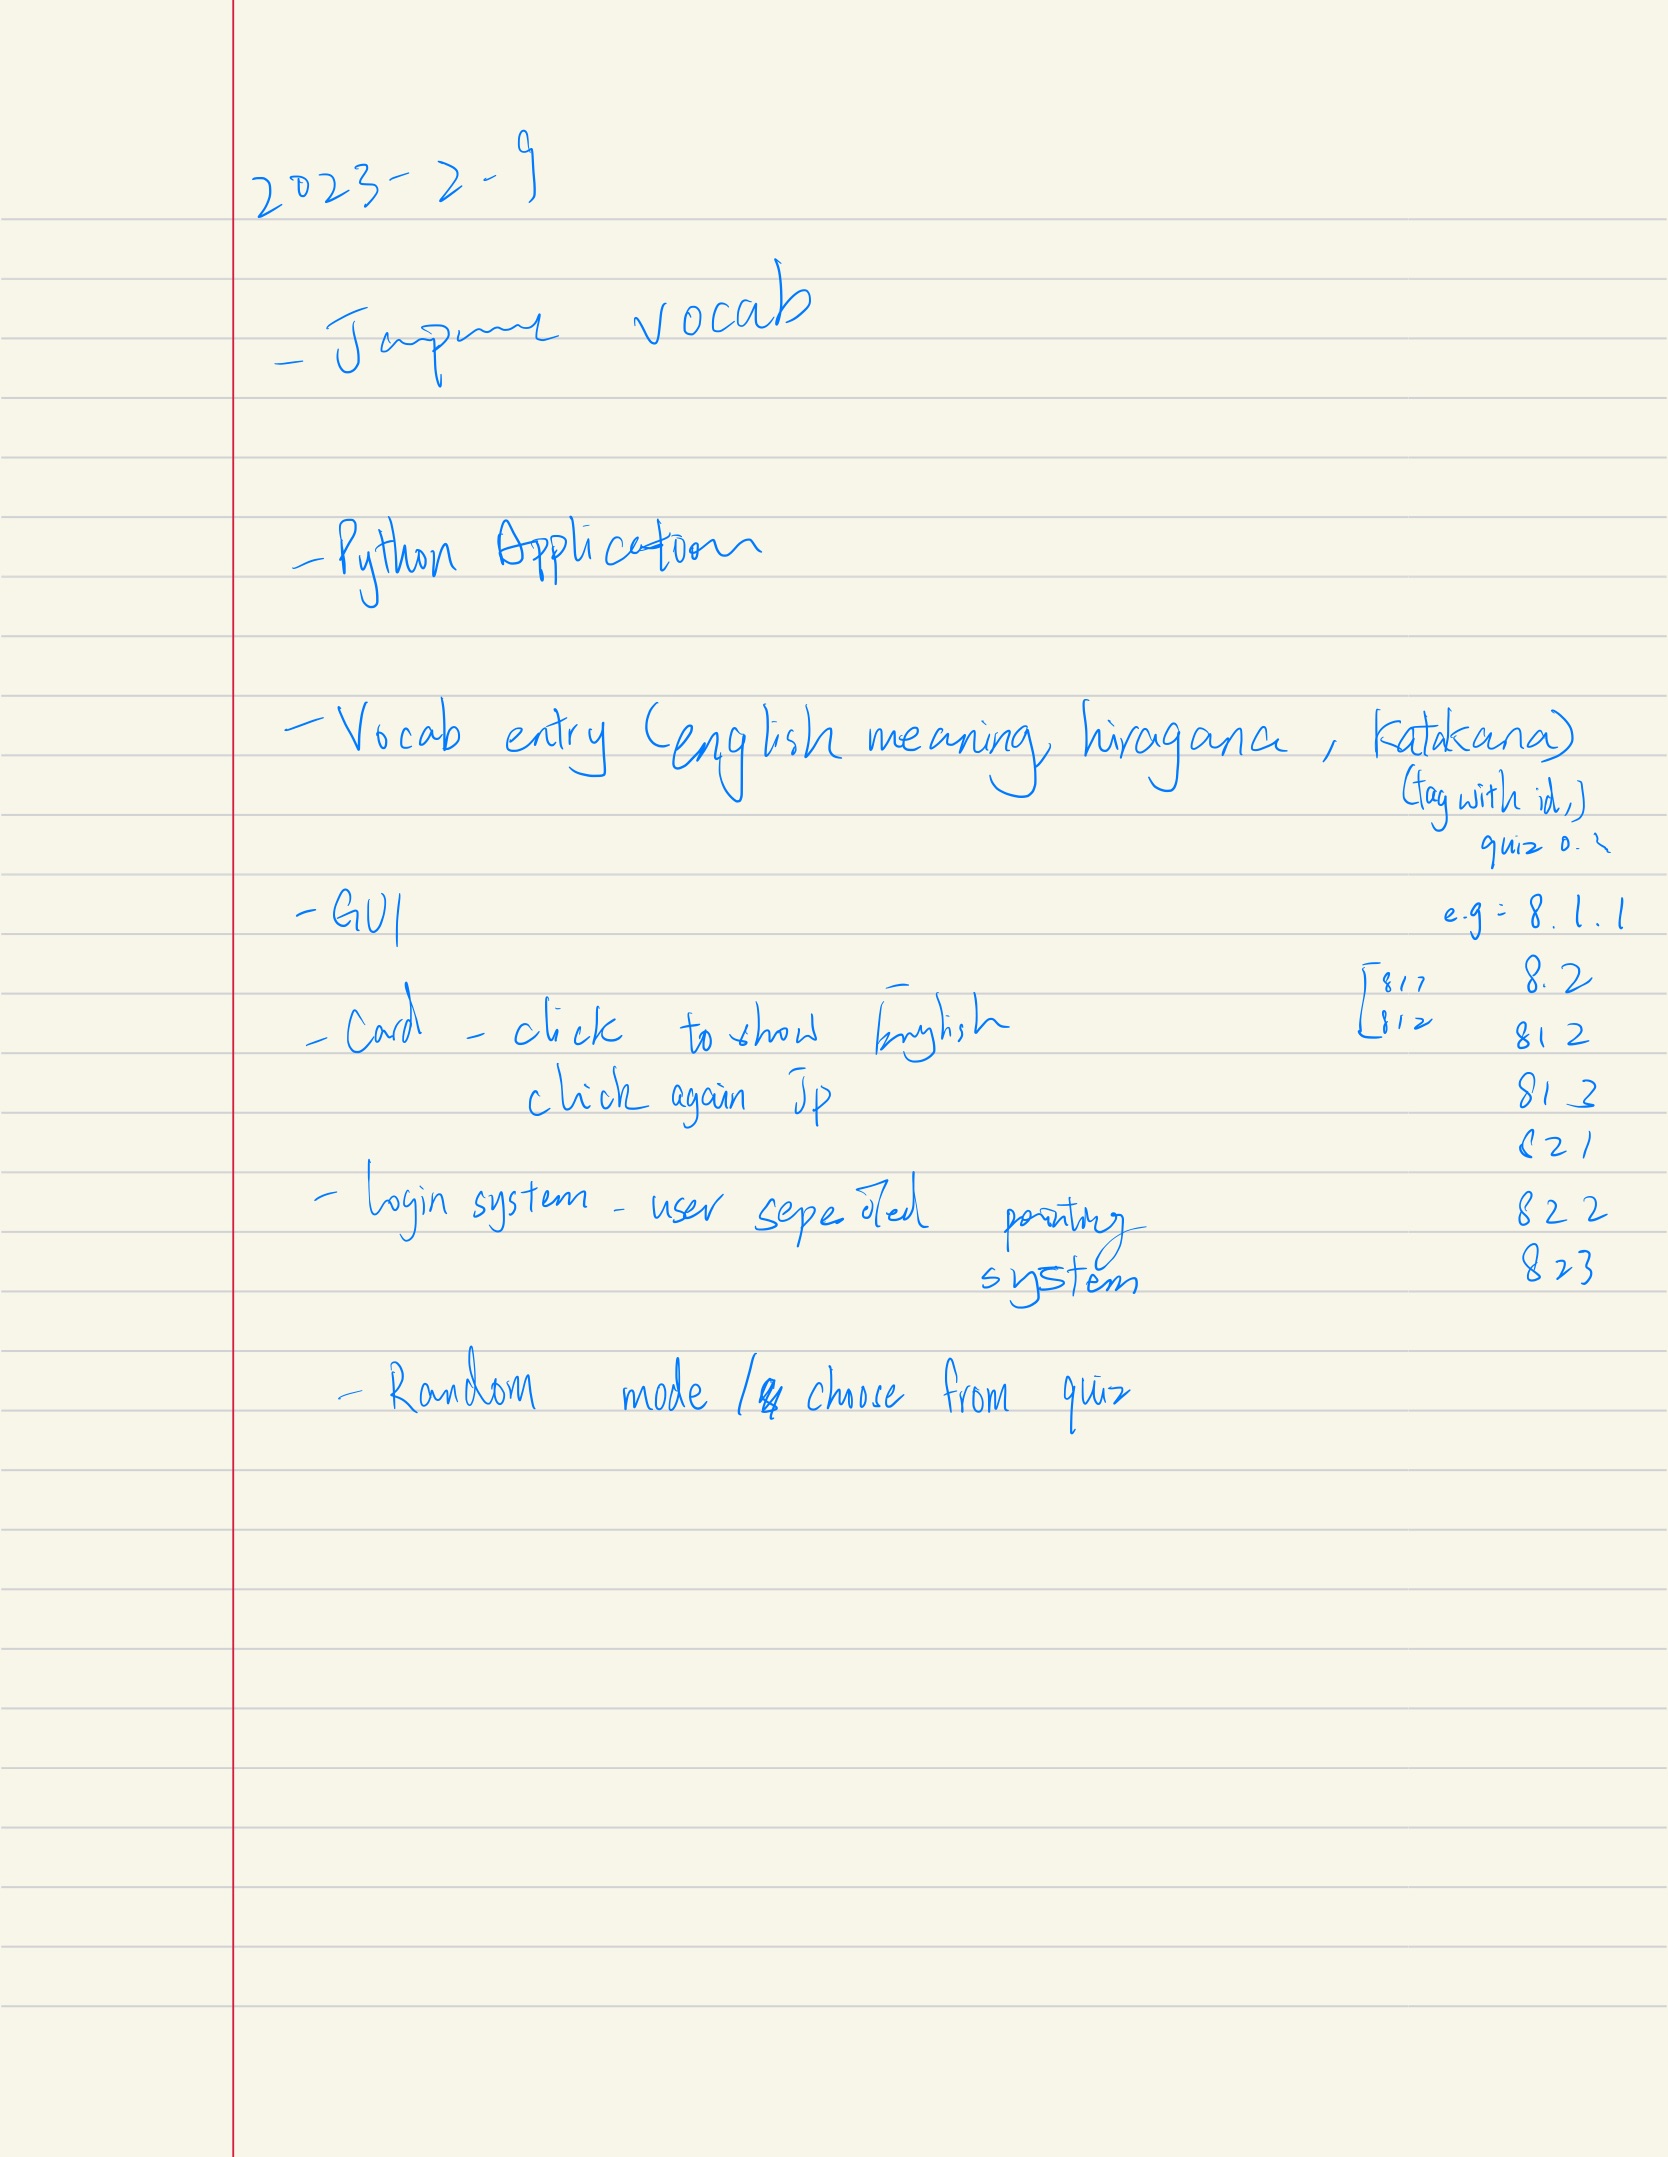 2023-2-9
- Japanese vocab
- Python Application
- Vocab entry (english meaning, hiragana, Katakana)
(tag with id,)
quiz
e.g = 8.1.1
- GUI
8.2
[811
812
812
- Card - click to show English
click again Jp
813
821
- login system - user seperated pointing
system
822
823
- Random mode / choose from quiz